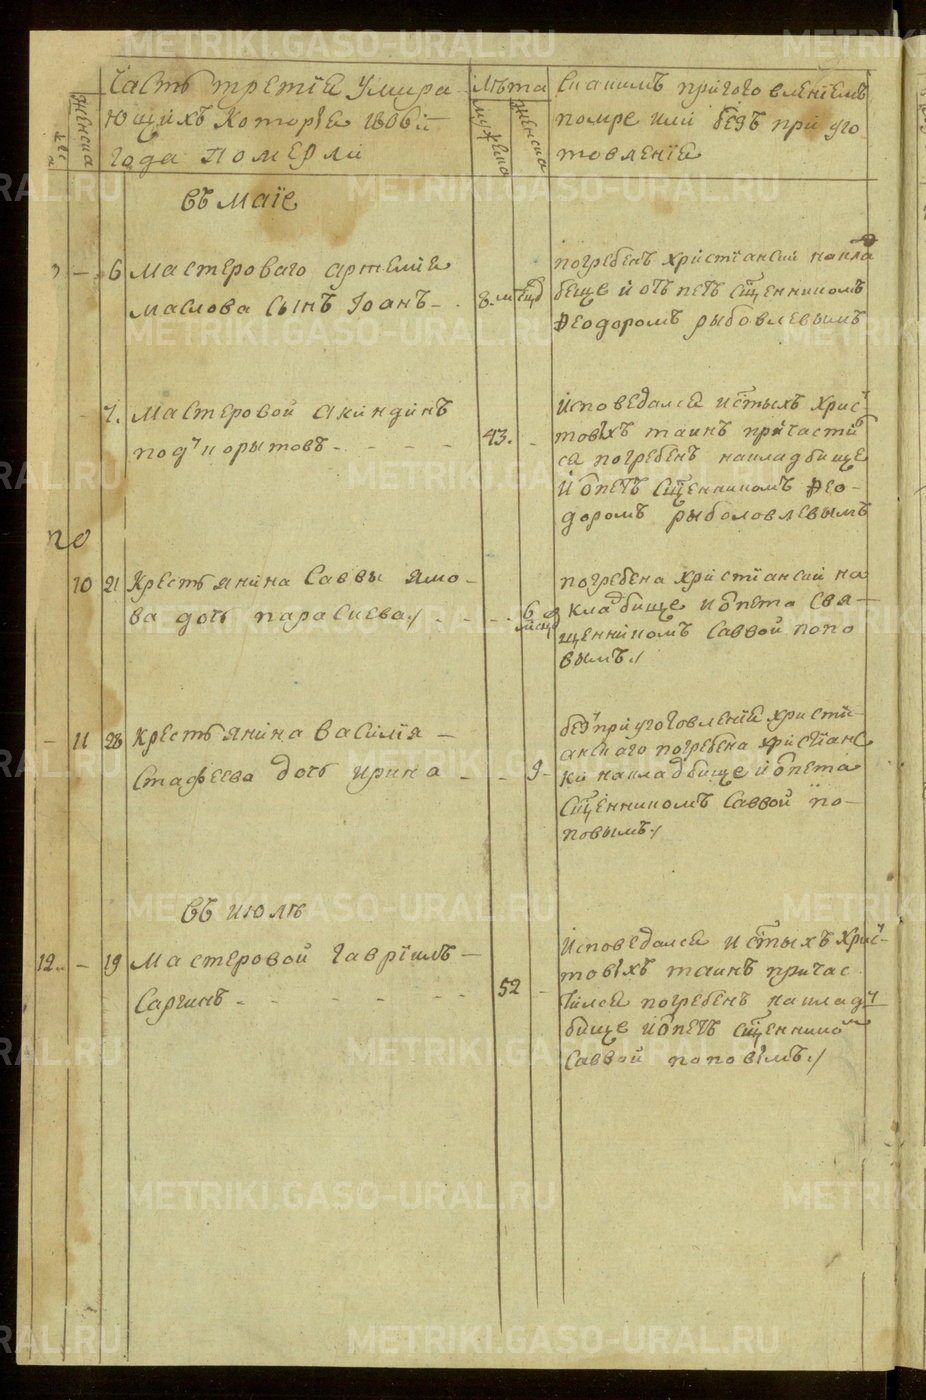 METRIKI.GASO-URAL.RU
Часть третїѧ умира
ющихъ которїе 1806й
года померли
Лѣта
мужеска
женска
Скакимъ приготовленїемъ
помре или безъ приуго
товленїѧ
женска
въ маїе
— 6 мастероваго артемїѧ
маслова сынъ Iоанъ —
8. мѣсцъ
погребенъ христїански накла
бище и отъпетъ сщенникомъ
Ѳеодоромъ рыбовлевымъ
7. мастеровой акиндинъ
подъкорытовъ - - - -
43. -
исповедалсѧ истыхъ хрис
товыхъ таинъ причасти
сѧ погребенъ накладбище
и опетъ сщенникомъ Ѳео-
доромъ рыболовлевымъ
10 21 крестьѧнина саввы ѧмо-
ва дочь параскева - - -
6 мсцъ
погребена христїански на
кладбище и опета свѧ-
щенникомъ саввой попо
вымъ
- 11 28 крестьѧнина василїѧ -
стафеева дочь ирина - -
9-
безъприуготовленїѧ христи-
анскаго погребена христїанс
ки накладбище и опета
сщенникомъ саввой по-
повымъ
въ июлѣ
12. - 19 мастеровой гаврїилъ -
Саргинъ - - - - - -
52 -
исповедалсѧ истыхъ хрис-
товыхъ таинъ причас
тилсѧ погребенъ наклад
бище и опетъ сщеннико
саввой поповымъ